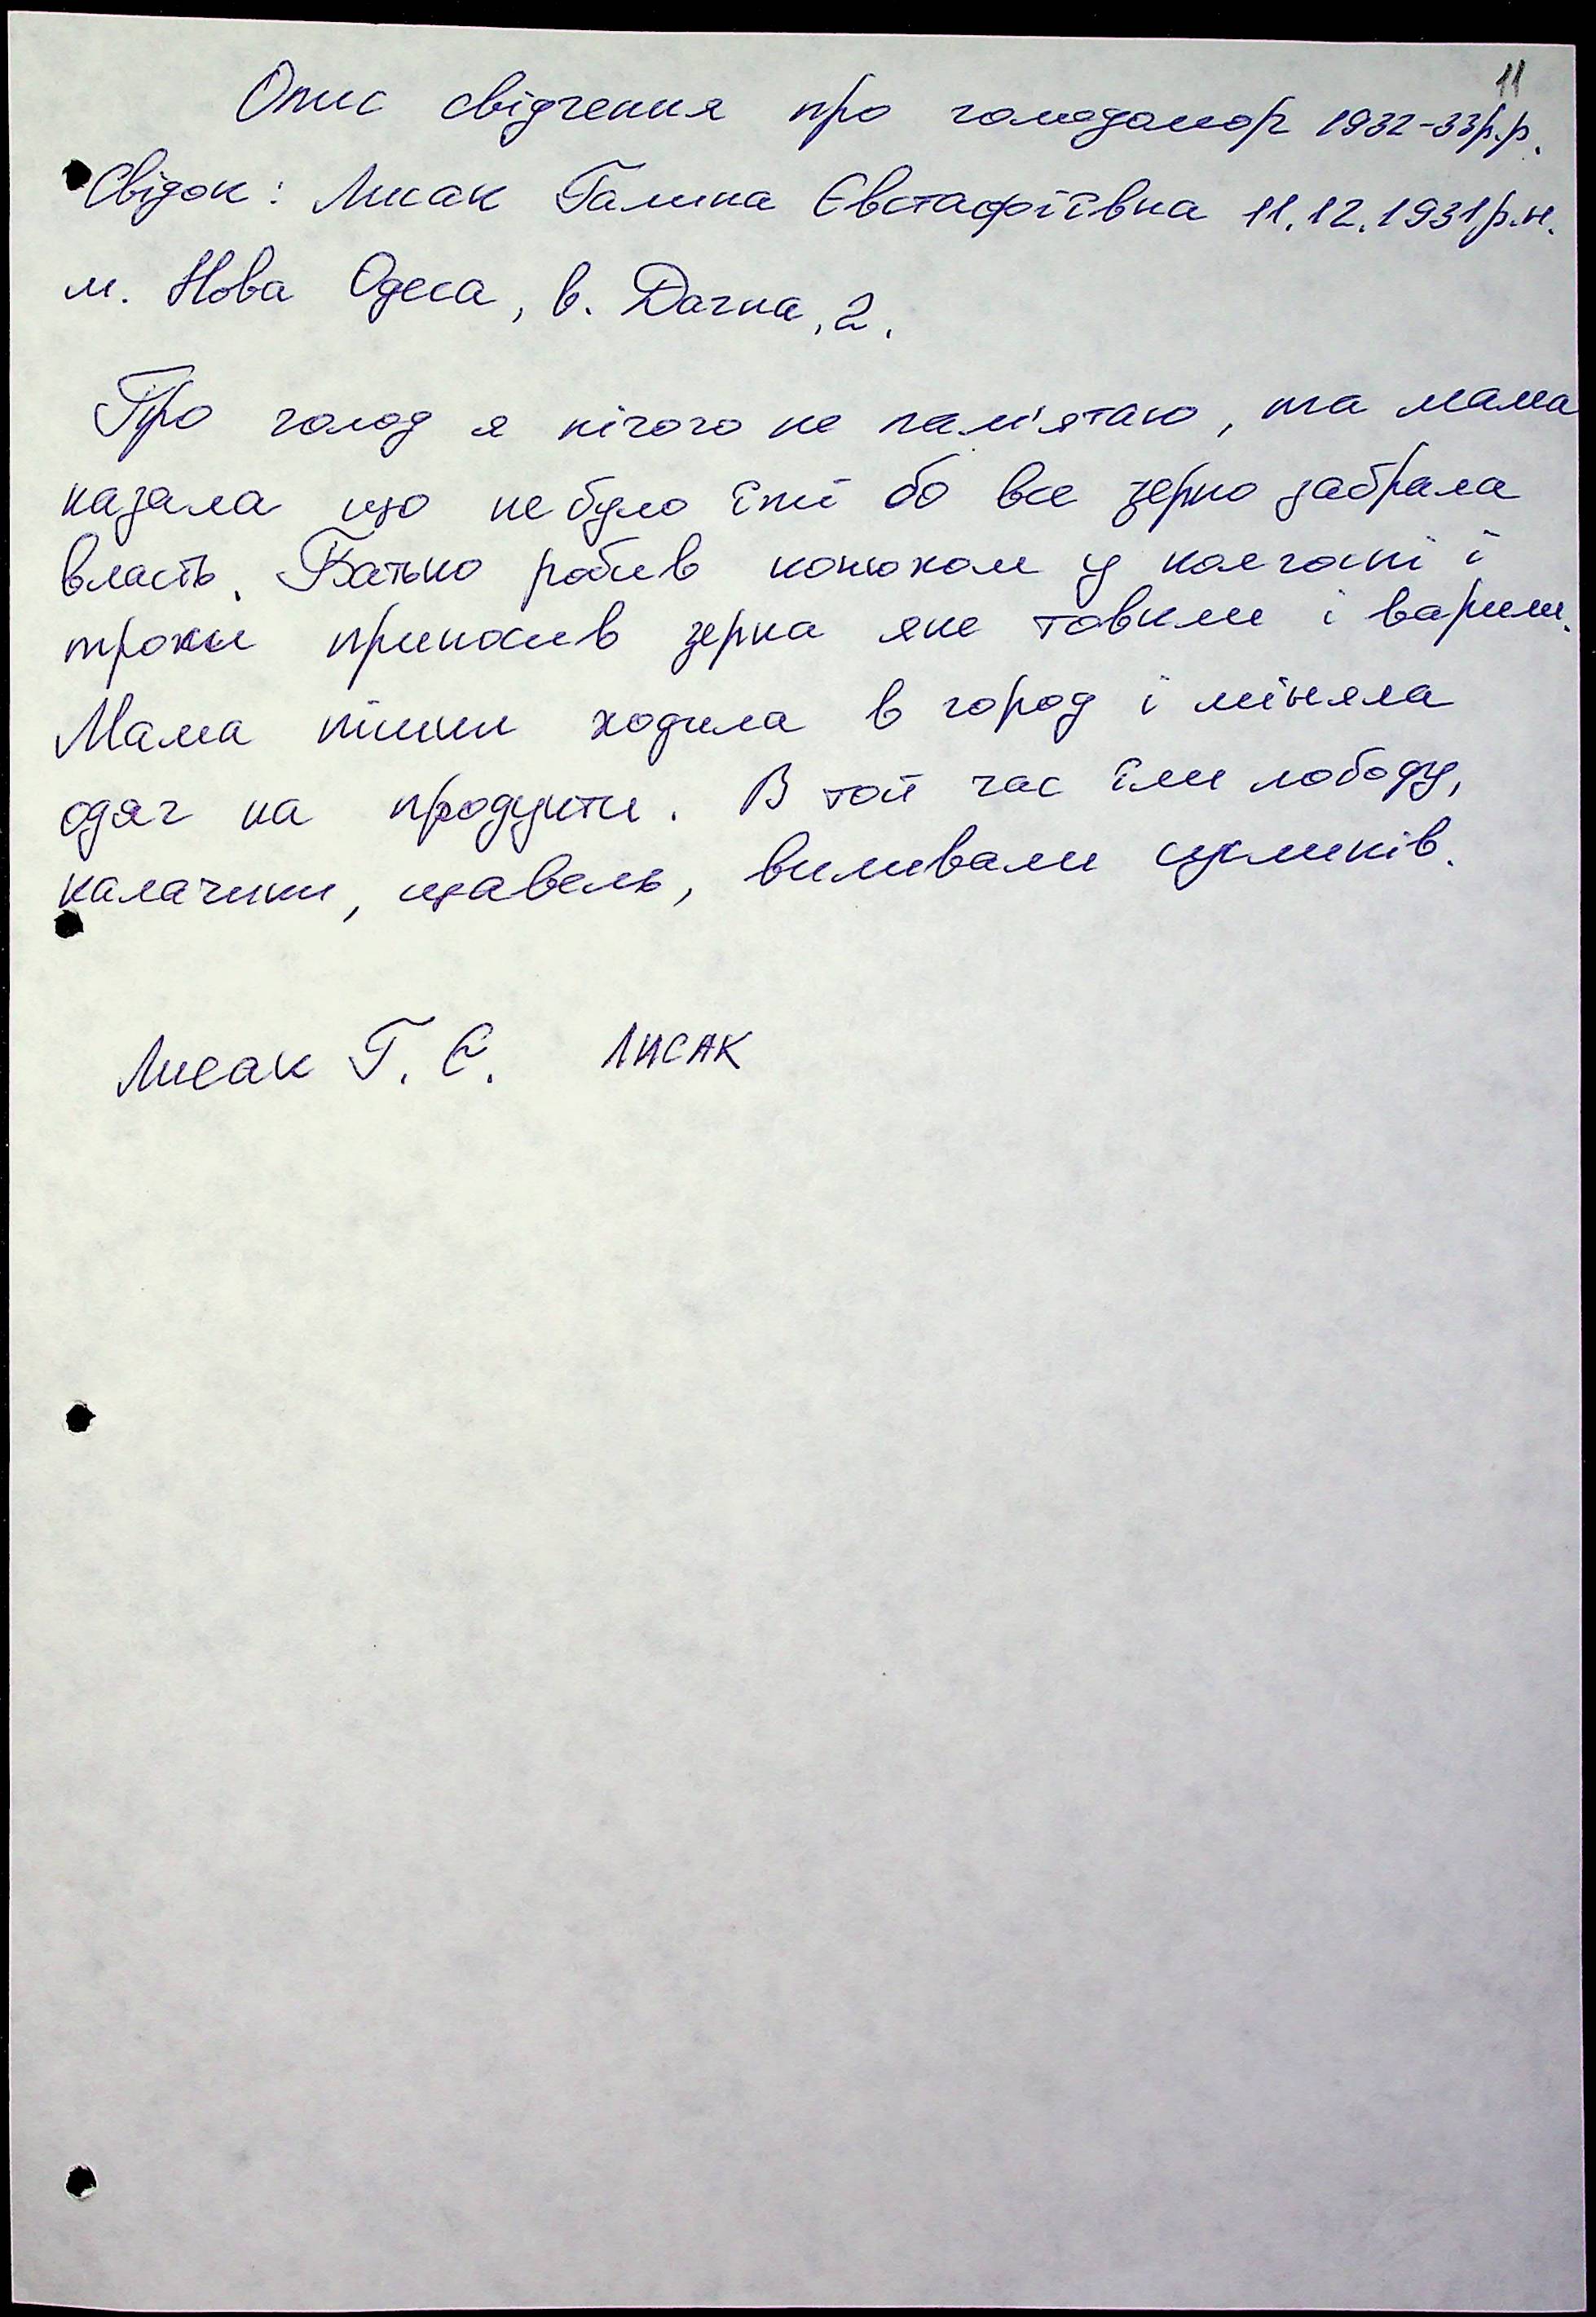 11
Опис свідчення про голодомор 1932-33р.р.
Свідок: Лисак Галина Євстафіївна 11.12.1931р.н.
м. Нова Одеса, в. Дачна, 2.
Про голод я нічого не пам'ятаю, та мама
казала що не було їжі бо все зерно забрала
власть. Батько робив конюхом у колгоспі і
трохи приносив зерна яке товкли і варили.
Мама пішки ходила в город і міняла
одяг на продукти. В той час їли лободу,
калачики, щавель, виливали сусликів.
Лисак Г. Є. ЛИСАК